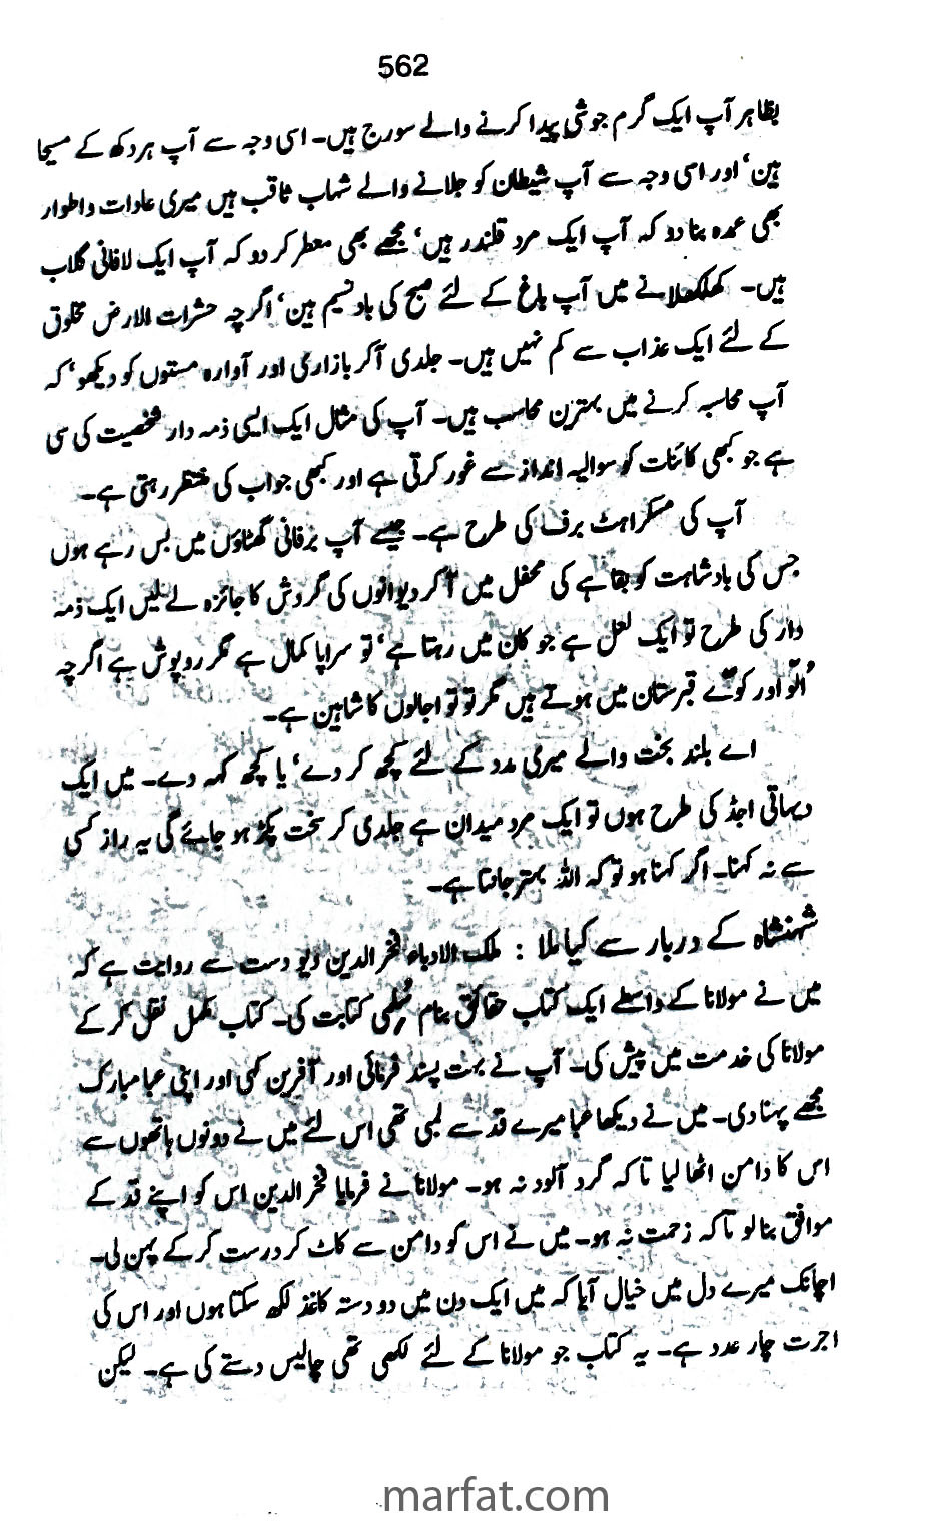 562
بظاہر آپ ایک گرم جوشی پیدا کرنے والے سورج ہیں۔ اسی وجہ سے آپ ہر دکھ کے مسیحا
ہین، اور اسی وجہ سے آپ شیطان کو جلانے والے شہاب ثاقب ہیں میری عادات و اطوار
بھی عمدہ بنا دو کہ آپ ایک مرد قلندر ہیں، مجھے بھی معطر کر دو کہ آپ ایک لافانی گلاب
ہیں۔ کھلکھلانے میں آپ باغ کے لئے صبح کی باد نسیم ہین، اگرچہ حشرات الارض مخلوق
کے لئے ایک عذاب سے کم نہیں ہیں۔ جلدی آ کر بازاری اور آوارہ مستوں کو دیکھو، کہ
آپ محاسبہ کرنے میں بہترن محاسب ہیں۔ آپ کی مثال ایک ایسی ذمہ دار شخصیت کی سی
ہے جو کبھی کائنات کو سوالیہ انداز سے غور کرتی ہے اور کبھی جواب کی منتظر رہتی ہے۔
آپ کی مسکراہٹ برف کی طرح ہے۔ جیسے آپ برفانی گھٹاؤں میں بس رہے ہوں
جس کی بادشاہت کو بقا ہے کی محفل میں آ کر دیوانوں کی گردش کا جائزہ لے لیں ایک ذمہ
دار کی طرح تو ایک لعل ہے جو کان میں رہتا ہے، تو سراپا کمال ہے مگر روپوش ہے اگرچہ
اُلّو اور کوّے قبرستان میں ہوتے ہیں مگر تو تو اجالوں کا شاہین ہے۔
اے بلند بخت والے میری مدد کے لئے کچھ کر دے، یا کچھ کہہ دے۔ میں ایک
دیہاتی اجڈ کی طرح ہوں تو ایک مرد میدان ہے جلدی کر سخت پکڑ ہو جائے گی یہ راز کسی
سے نہ کہنا۔ اگر کہنا ہو تو کہ اللہ بہتر جانتا ہے۔
شہنشاہ کے دربار سے کیا ملا : ملک الادباء فخر الدین دیو دست سے روایت ہے کہ
میں نے مولانا کے واسطے ایک کتاب حقائق بنام سُلمی کتابت کی۔ کتاب مکمل نقل کر کے
مولانا کی خدمت میں پیش کی۔ آپ نے بہت پسند فرمائی اور آفرین کہی اور اپنی عبا مبارک
مجھے پہنا دی۔ میں نے دیکھا عبا میرے قد سے لمبی تھی اس لئے میں نے دونوں ہاتھوں سے
اس کا دامن اٹھا لیا تا کہ گرد آلود نہ ہو۔ مولانا نے فرمایا فخر الدین اس کو اپنے قد کے
موافق بنا لو تا کہ زحمت نہ ہو۔ میں نے اس کو دامن سے کاٹ کر درست کر کے پہن لی۔
اچانک میرے دل میں خیال آیا کہ میں ایک دن میں دو دستہ کاغذ لکھ سکتا ہوں اور اس کی
اجرت چار عدد ہے۔ یہ کتاب جو مولانا کے لئے لکھی تھی چالیس دستے کی ہے۔ لیکن
marfat.com